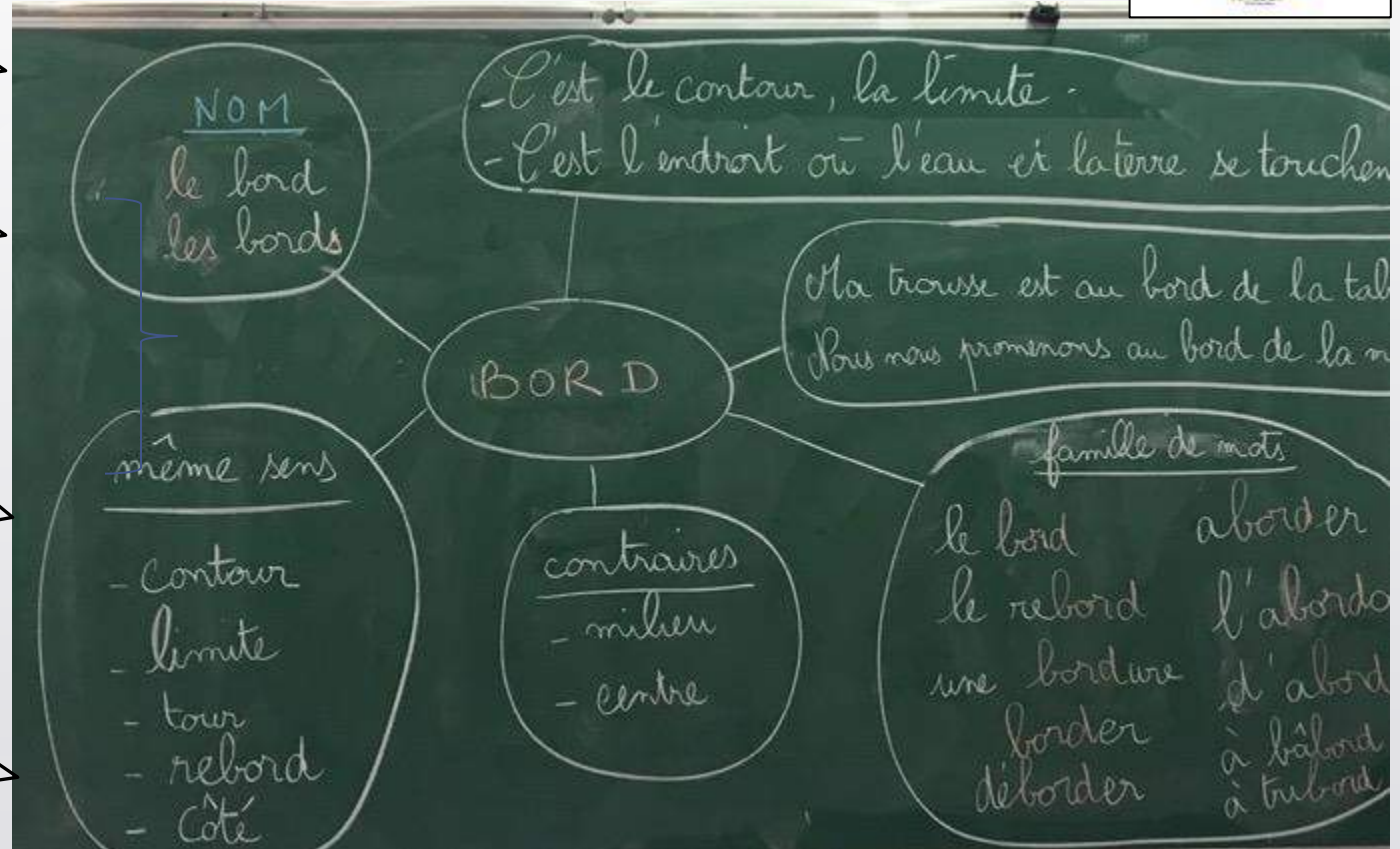 NOM
le bord
les bords
- C'est le contour, la limite.
- C'est l'endroit où l'eau et la terre se touchen
BORD
Ma trousse est au bord de la tal
Nous nous promenons au bord de la m
même sens
- contour
- limite
- tour
- rebord
- côté
contraires
- milieu
- centre
famille de mots
le bord aborder
le rebord l'aborda
une bordure d'abord
border à bâbord
déborder à tribord